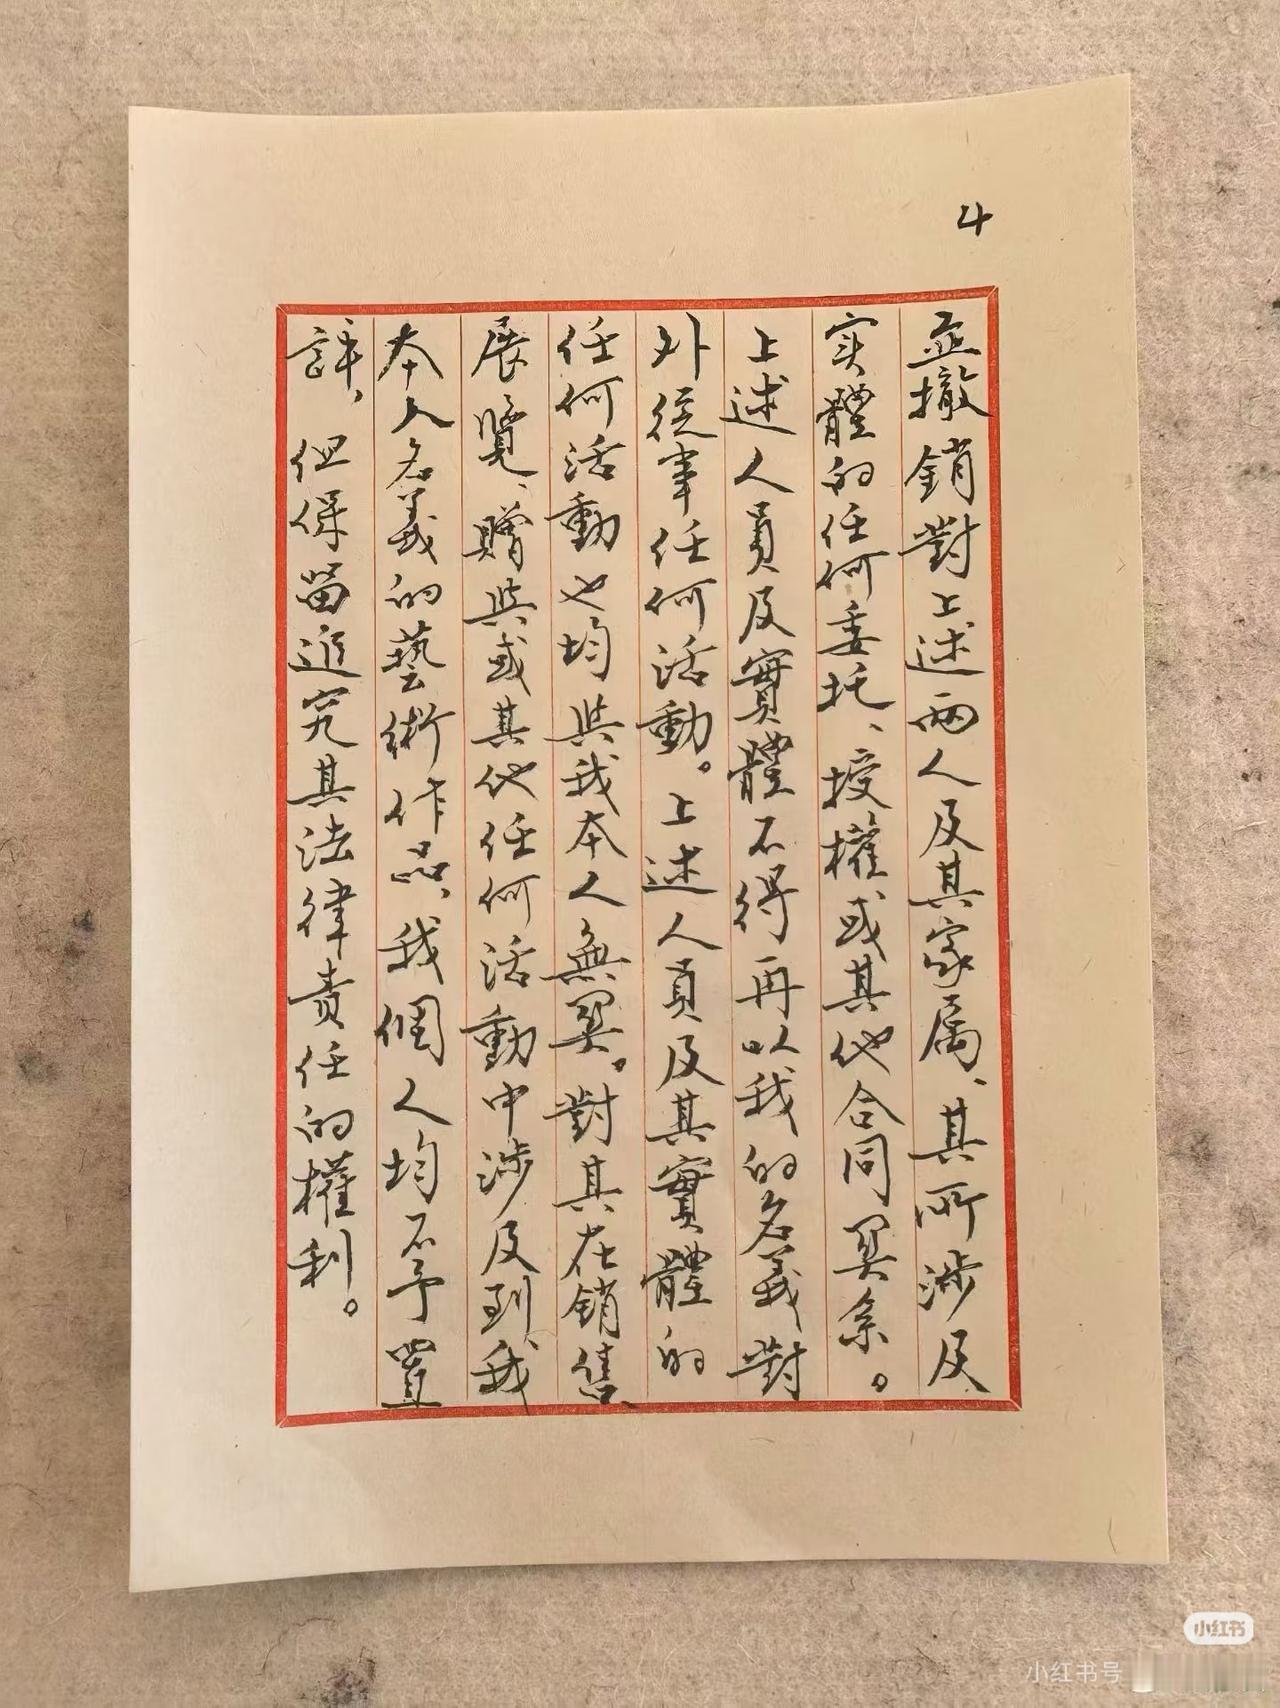 4
並撤銷對上述兩人及其家属、其所涉及
实體的任何委托、授權或其他合同関系。
上述人員及實體不得再以我的名義對
外從事任何活動。上述人員及其實體的
任何活動也均與我本人無関。對其在銷售、
展覽、贈與或其他任何活動中涉及到我
本人名義的藝術作品，我個人均不予置
評，但保留追究其法律責任的權利。
小红书
小红书号